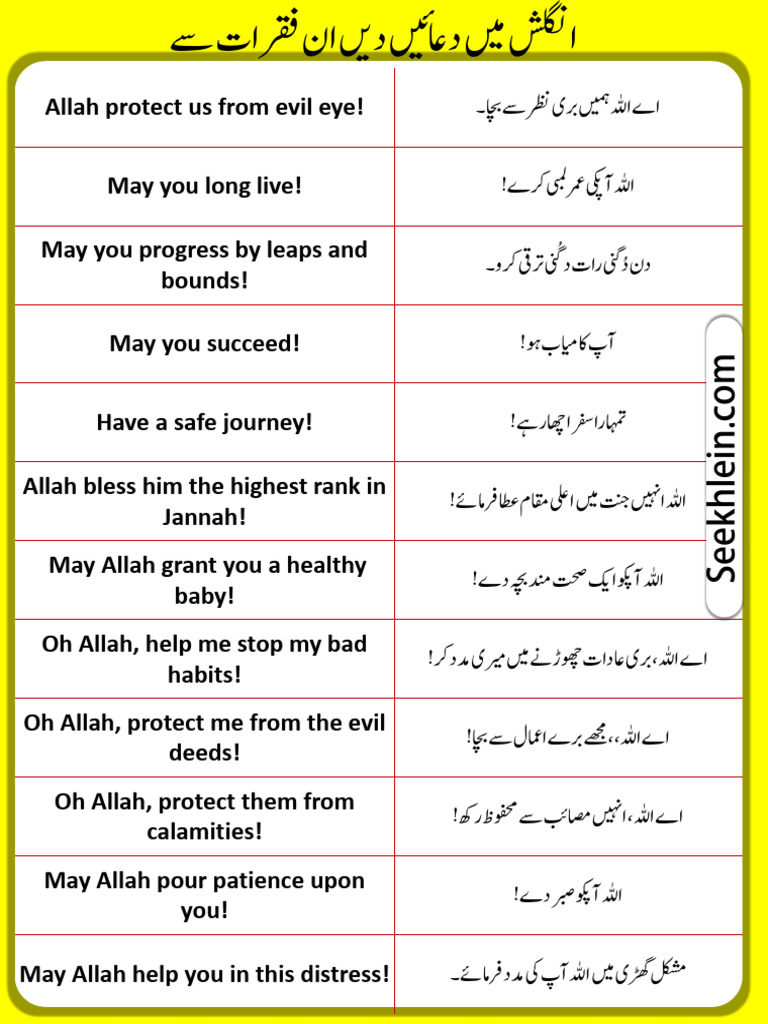 انگلش میں دعائیں دیں ان فقرات سے
Allah protect us from evil eye!
اے اللہ ہمیں بری نظر سے بچا۔
May you long live!
اللہ آپکی عمر لمبی کرے!
May you progress by leaps and
bounds!
دن دُگنی رات دگُنی ترقی کرو۔
May you succeed!
آپ کامیاب ہو!
Have a safe journey!
تمہارا سفر اچھا رہے!
Allah bless him the highest rank in
Jannah!
اللہ انہیں جنت میں اعلی مقام عطا فرمائے!
May Allah grant you a healthy
baby!
اللہ آپکو ایک صحت مند بچہ دے!
Oh Allah, help me stop my bad
habits!
اے اللہ، بری عادات چھوڑنے میں میری مدد کر!
Oh Allah, protect me from the evil
deeds!
اے اللہ،، مجھے برے اعمال سے بچا!
Oh Allah, protect them from
calamities!
اے اللہ، انہیں مصائب سے محفوظ رکھ!
May Allah pour patience upon
you!
اللہ آپکو صبر دے!
May Allah help you in this distress!
مشکل گھڑی میں اللہ آپ کی مدد فرمائے۔
Seekhlein.com